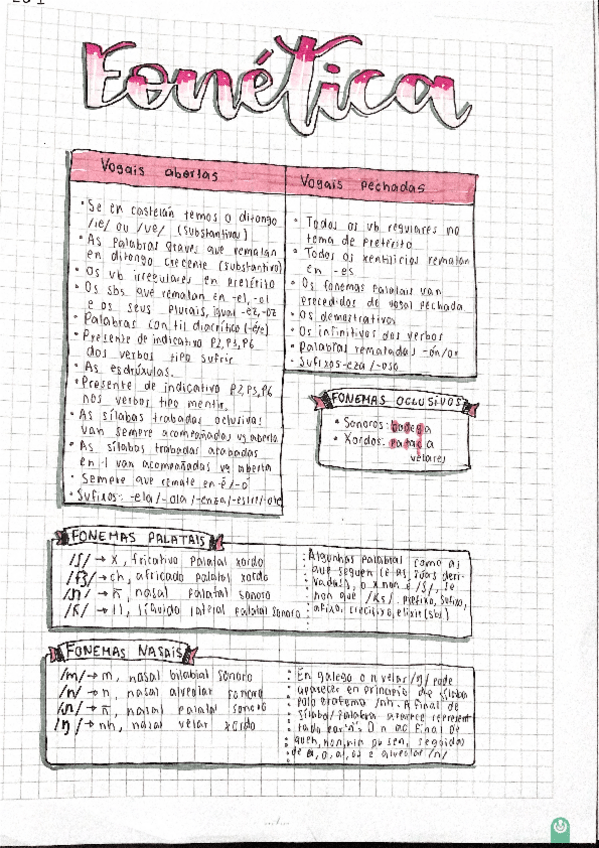 Fonética
Vogais abertas
• Se en castelán temos o ditongo
/ie/ ou /ve/ (substantivos)
• As palabras graves que rematan
en ditongo crecente (substantivo)
• Os vb irregulares en pretérito
• Os sbs que rematan en -el, -ol
e os seus plurais, igual -ez, -oz
• Palabras con til diacrítico
• Presente de indicativo P2, P3, P6
dos verbos tipo sufrir
• As esdrúxulas.
• Presente de indicativo P2, P3, P6
nos verbos tipo mentir.
• As sílabas trabadas oclusivas
van sempre acompañadas vg aberta
• As sílabas trabadas acabadas
en -l van acompañadas vg aberta
• Sempre que remate en -é / -ó
• Sufixos: -ela / -ola / -enza / -estre /
Vogais pechadas
• Todos os vb regulares no
tema de pretérito
• Todos os xentilicios rematan
en -es
• Os fonemas palatais van
precedidos de vogal pechada
• Os demostrativos
• Os infinitivos dos verbos
• Palabras rematadas -ón/or
• Sufixos -eza / -oso
FONEMAS OCLUSIVOS
• Sonoros: bodega
• Xordos:
velares
FONEMAS PALATAIS
/ʃ/ → x, fricativo palatal xordo
/tʃ/ → ch, africado palatal xordo
/ɲ/ → ñ, nasal palatal sonoro
→ ll, líquido lateral palatal sonoro
Algunhas palabras como as
que seguen (e as súas deri-
vadas), o x non é /ʃ/, se
non que /ks/: prefixo, sufixo,
afixo, crucifixo, elixir (sbs)
FONEMAS NASAIS
/m/ → m, nasal bilabial sonoro
/n/ → n, nasal alveolar sonoro
/ɲ/ → ñ, nasal palatal sonoro
/ŋ/ → nh, nasal velar xordo
En galego o n velar /ŋ/ pode
aparecer en principio de sílaba
polo grafema /nh. A final de
sílaba/palabra aparece represen
tado por "n". O n ao final de
quen, non, nin ou sen, seguidas
de a, o, as, os é alveolar /n/